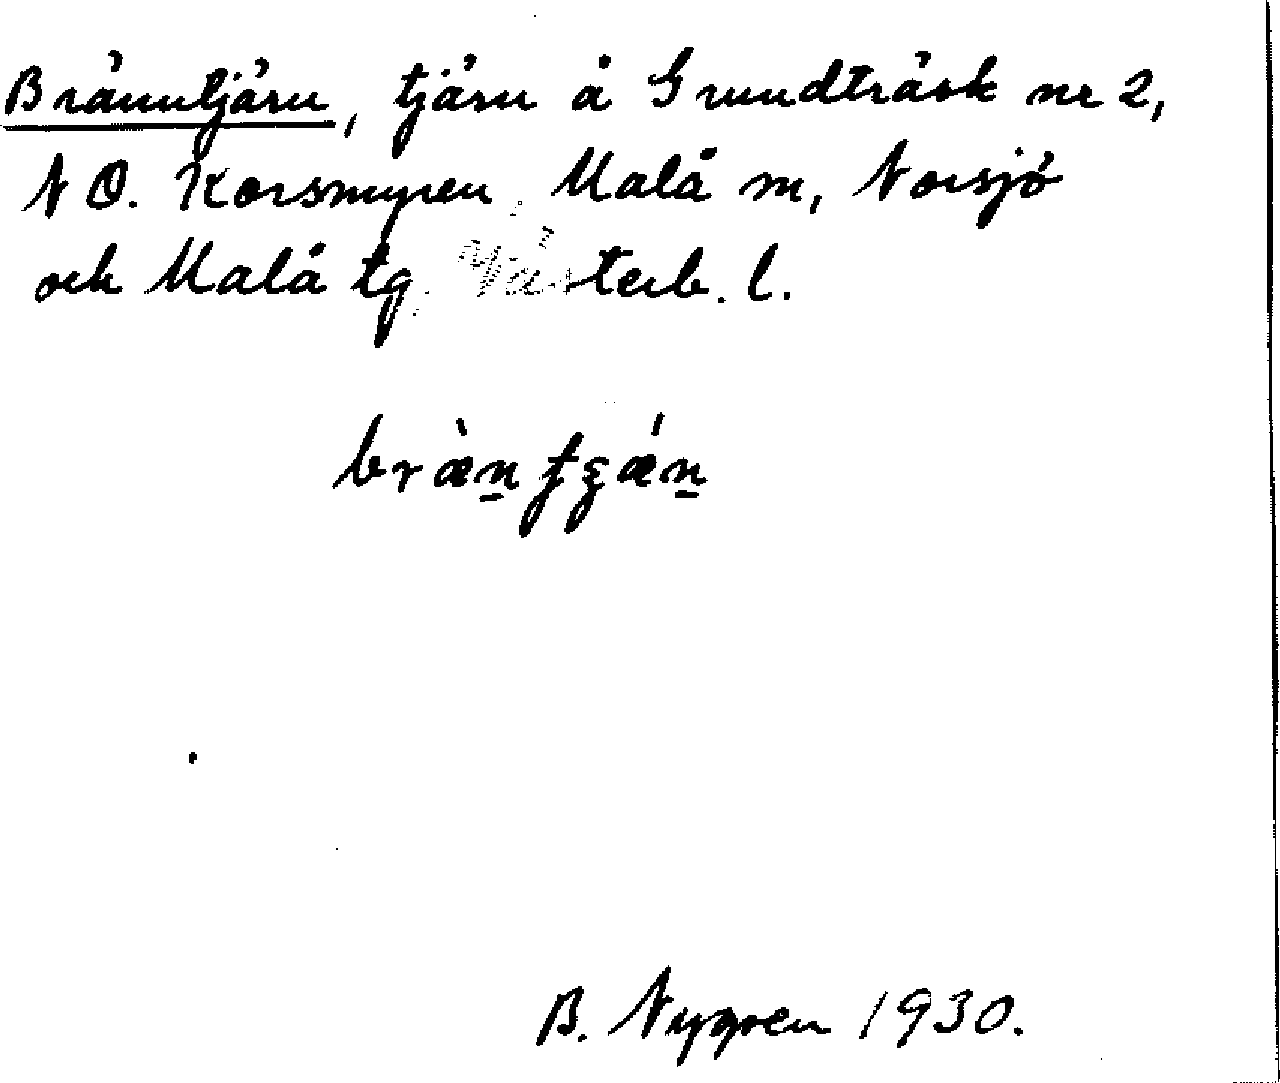 Bränntjärn, tjärn å Grundträsk nr 2,
NO. Korsmyren, Malå sn, Norsjö
och Malå tg. Västerb. l.
bræ̀n̲ tʒǽn̲
B. Nygren 1930.